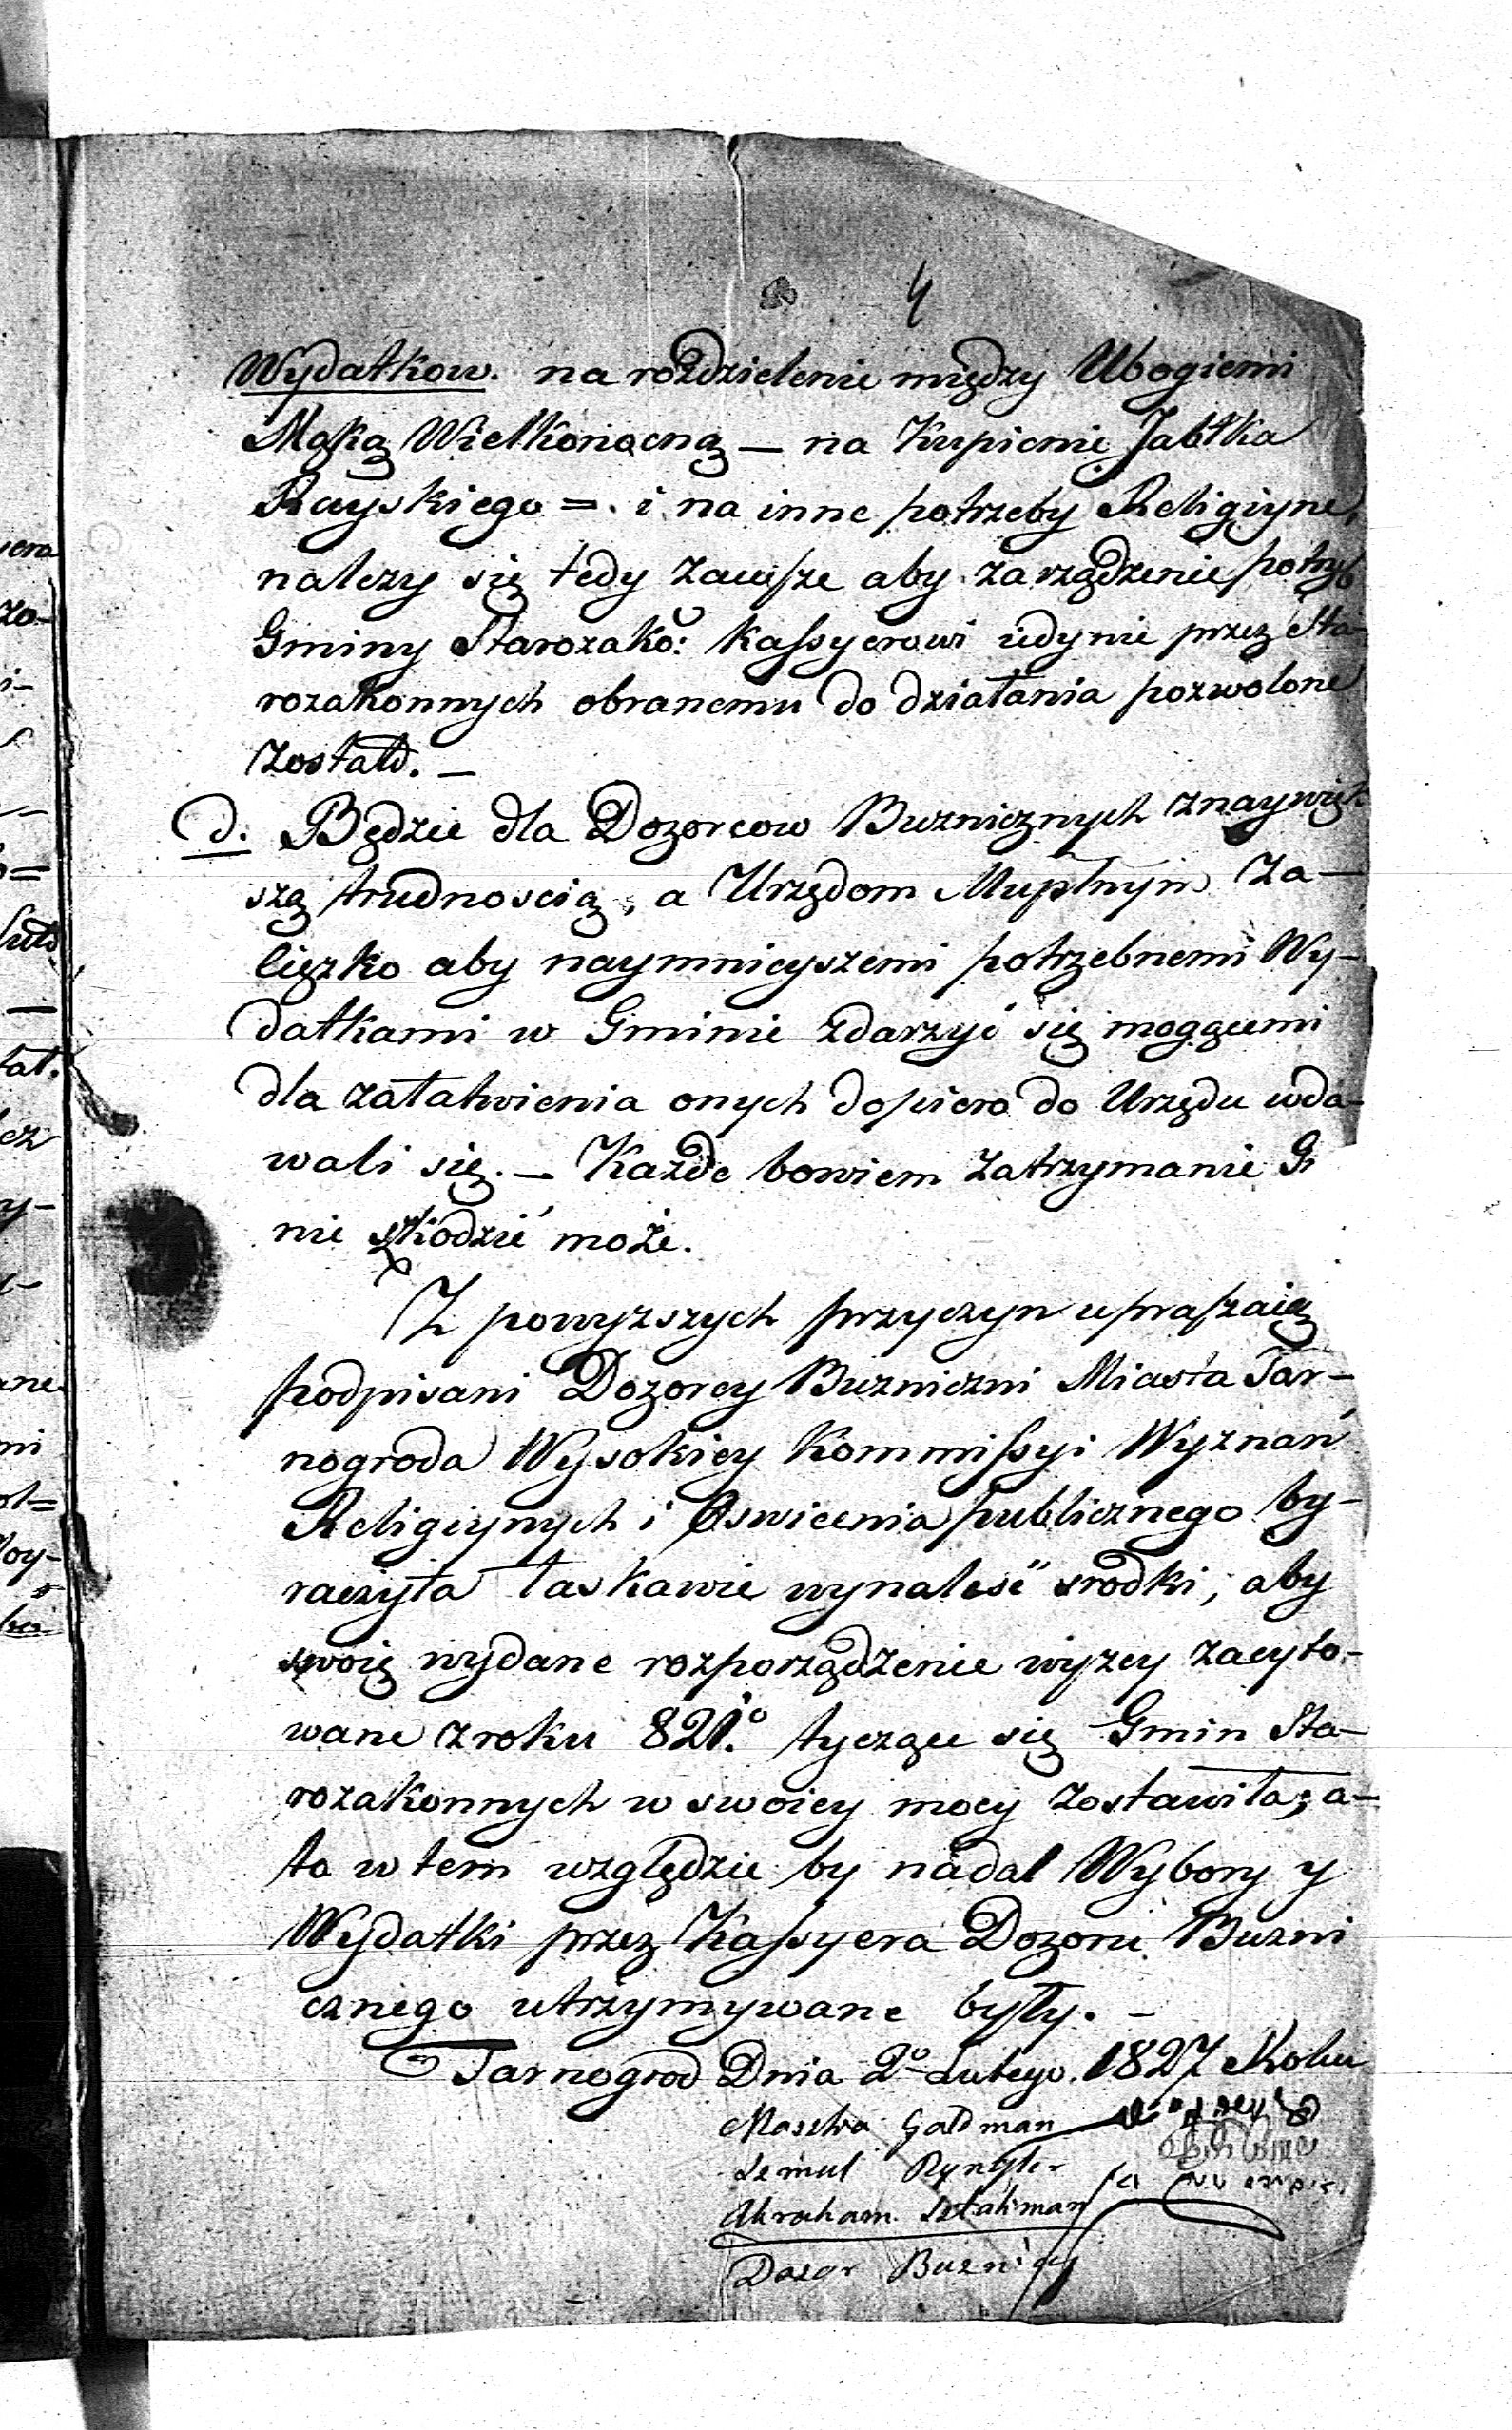 4
Wydatkow. na rozdzielenie między Ubogiemi
Mąką Wielkonocną — na Kupienie Jabłka
Rayskiego =. i na inne potrzeby Religiyne,
nalezy się tedy zawsze aby zarządzenie potrzeb
Gminy Starozako: Kassyerowi iedynie przez Sta-
rozakonnych obranemu do działania pozwolone
zostało. —
d. Będzie dla Dozorcow Buznicznych znaywięk
szą trudnoscią, a Urzędom Za-
cięzko aby naymnieyszemi potrzebnemi Wy-
datkami w Gminie zdarzyć się mogącemi
dla załatwienia onych dopiero do Urzędu uda-
wali się. — Każde bowiem zatrzymanie G
nie szkodzić może.
Z powyzszych przyczyn upraszaią
podpisani Dozorcy Buzniczni Miasta Tar-
nogroda Wysokiey Kommissyi Wyznań
Religiynych i Oswiecenia publicznego by-
raczyła łaskawie wynalesć srodki, aby
swoię wydane rozporządzenie wyzey zacyto-
wane z roku 821.° tyczące się Gmin Sta-
rozakonnych w swoiey mocy zostawiła; a-
to w tem względzie by nadal Wybory y
Wydatki przez Kassyera Dozoru Buzni
cznego utrzymywane były. —
Tarnogrod Dnia 2° Lutego. 1827 Roku
Moszko Goldman
Szmul Ryngler
Abraham Sztahman
Dozor Buznicy